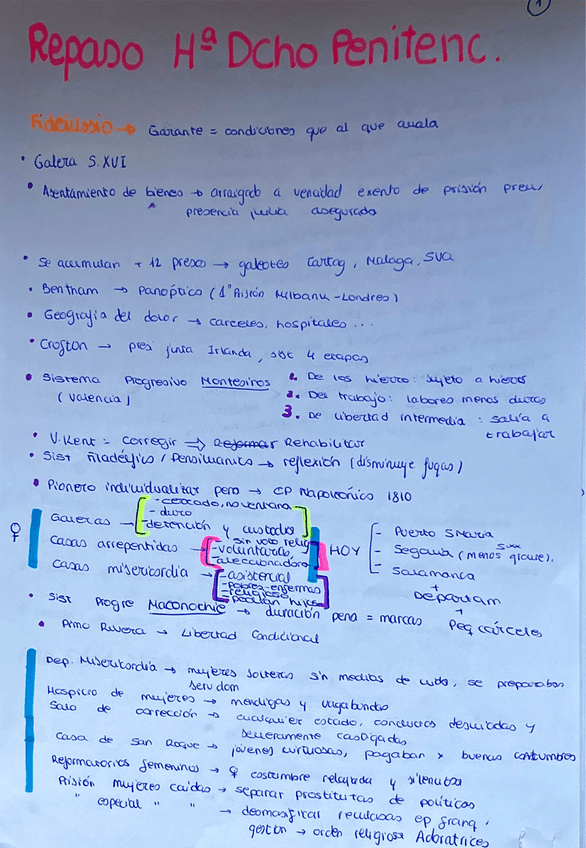 1
Repaso Hª Dcho Penitenc.
Fideiussio → Garante = condiciones que al que avala
• Galera S.XVI
• Asentamiento de bienes → arraigado a vencidad exento de prisión prev,
presencia juicio asegurado
• Se acumulan + 12 presos → galeotes Cartag, Malaga, SVQ
• Bentham → Panoptico (1ª Prisión Milbank - Londres)
• Geografía del dolor → carceles, hospitales ...
• Crofton → pres junta Irlanda, sist 4 etapas
• Sistema Progresivo Montesinos
(Valencia)
1. De los hierro: sujeto a hierros
2. Del trabajo: labores menos duras
3. De libertad intermedia: salía a
trabajar
• V. Kent = corregir ⇒ Reformar Rehabilitar
• Sist filadélfico / Pensilvanico → reflexión (disminuye fugas)
• Pionero individualizar pero → CP Napoleónico 1810
♀
Galeras →
- cerrado, no ventana
- duro
- detención y custodia
Casas arrepentidas →
sin voto relig
- voluntarias,
- aleccionadora
Casas misericordia →
- asistencial
- pobres-enfermas
- religiosa
- pedían hijos
HOY
- Puerto S Maria
- Segovia (menos grave).
- Salamanca
+
Departam
+
Peq cárceles
• Sist Progre Maconochie → duración pena = marcas
• Primo Rivera → Libertad Condicional
Dep. Misericordia → mujeres solteras sin medios de vida, se preparaban
serv dom
Hospicio de mujeres → mendigas y vagabundas
Sala de corrección → cualquier estado, conductas descuidadas y
severamente castigadas
Casa de San Roque → jóvenes virtuosas, pagaban x buenas costumbres
Reformatorios femeninos → ♀ costumbre relajada y silenciosa
Prisión mujeres caidas → separar prostitutas de políticas
" especial " " → desmasificar reclusas ep franq.
gestión → orden religiosa Adoratrices